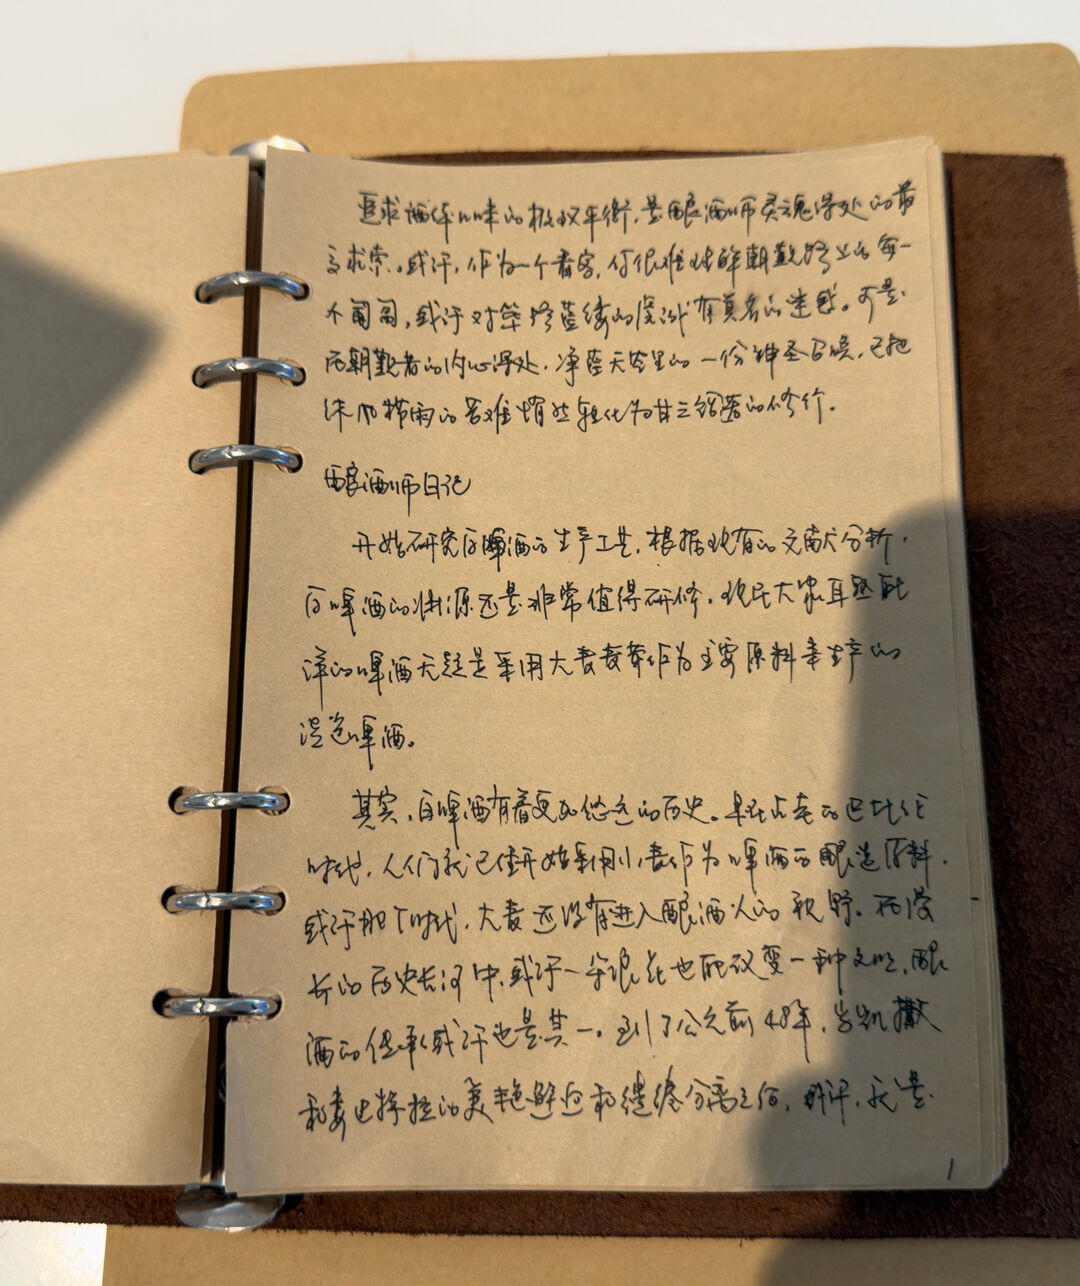 追求酒体口味的极致平衡，是酿酒师灵魂深处的最
高求索。或许，作为一个看客，你很难理解朝觐路上的每一
个匍匐，或许对筚路蓝缕的虔诚有莫名的迷惑。可是
在朝觐者的内心深处，净蓝天宇里的一份神圣召唤，已把
沐风栉雨的苦难悄然转化为甘之若饴的修行。
酿酒师日记
开始研究白啤酒的生产工艺，根据现有的文献分析，
白啤酒的起源还是非常值得研修。现在大家耳熟能
详的啤酒无疑是采用大麦麦芽作为主要原料来生产的
淡色啤酒。
其实，白啤酒有着更加悠远的历史。早在古老的巴比伦
时代，人们就已经开始采用小麦作为啤酒的酿造原料，
或许那个时代，大麦还没有进入酿酒人的视野。在漫
长的历史长河中，或许一朵浪花也能改变一种文明，酿
酒的传承或许也是其一。到了公元前48年，当凯撒
和麦巴特拉的美艳邂逅和缱绻分离之后，或许，就是
1